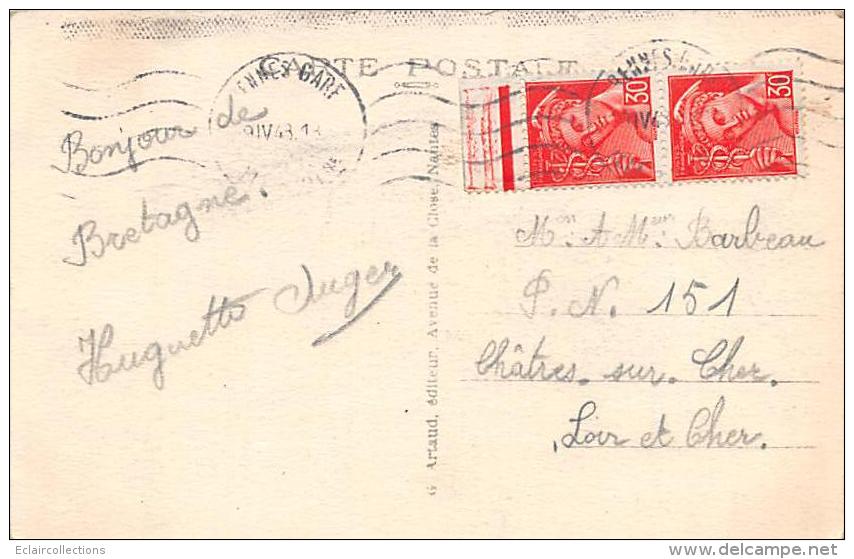 CARTE POSTALE
RENNES GARE
9IV43.
RENNES-GARE
30
30
Bonjour de
Bretagne.
Huguette Auger
Mon. A Meur Barbeau
P. N. 151
Châtres. sur. Cher.
Loir et Cher.
G Artaud, éditeur, Avenue de la Close, Nantes
Eclaircollections
www.delcampe.net